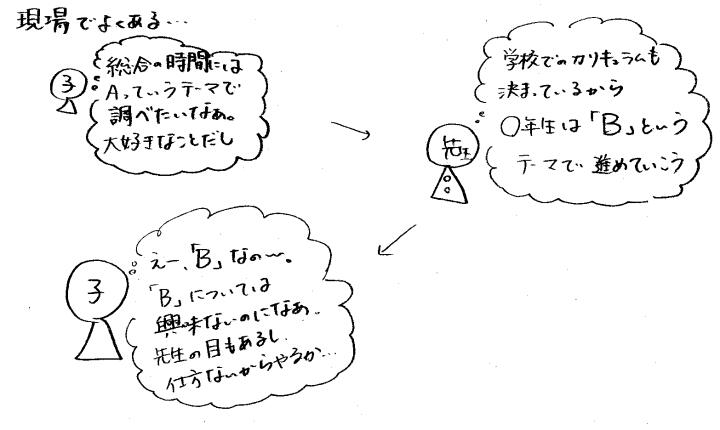 現場でよくある…
子
総合の時間には
Aっていうテーマで
調べたいなぁ。
大好きなことだし
先生
学校でのカリキュラムも
決まっているから
○年生は「B」という
テーマで進めていこう
子
えー、「B」なの〜。
「B」については
興味ないのになぁ。
先生の目もあるし、
仕方ないからやるか…